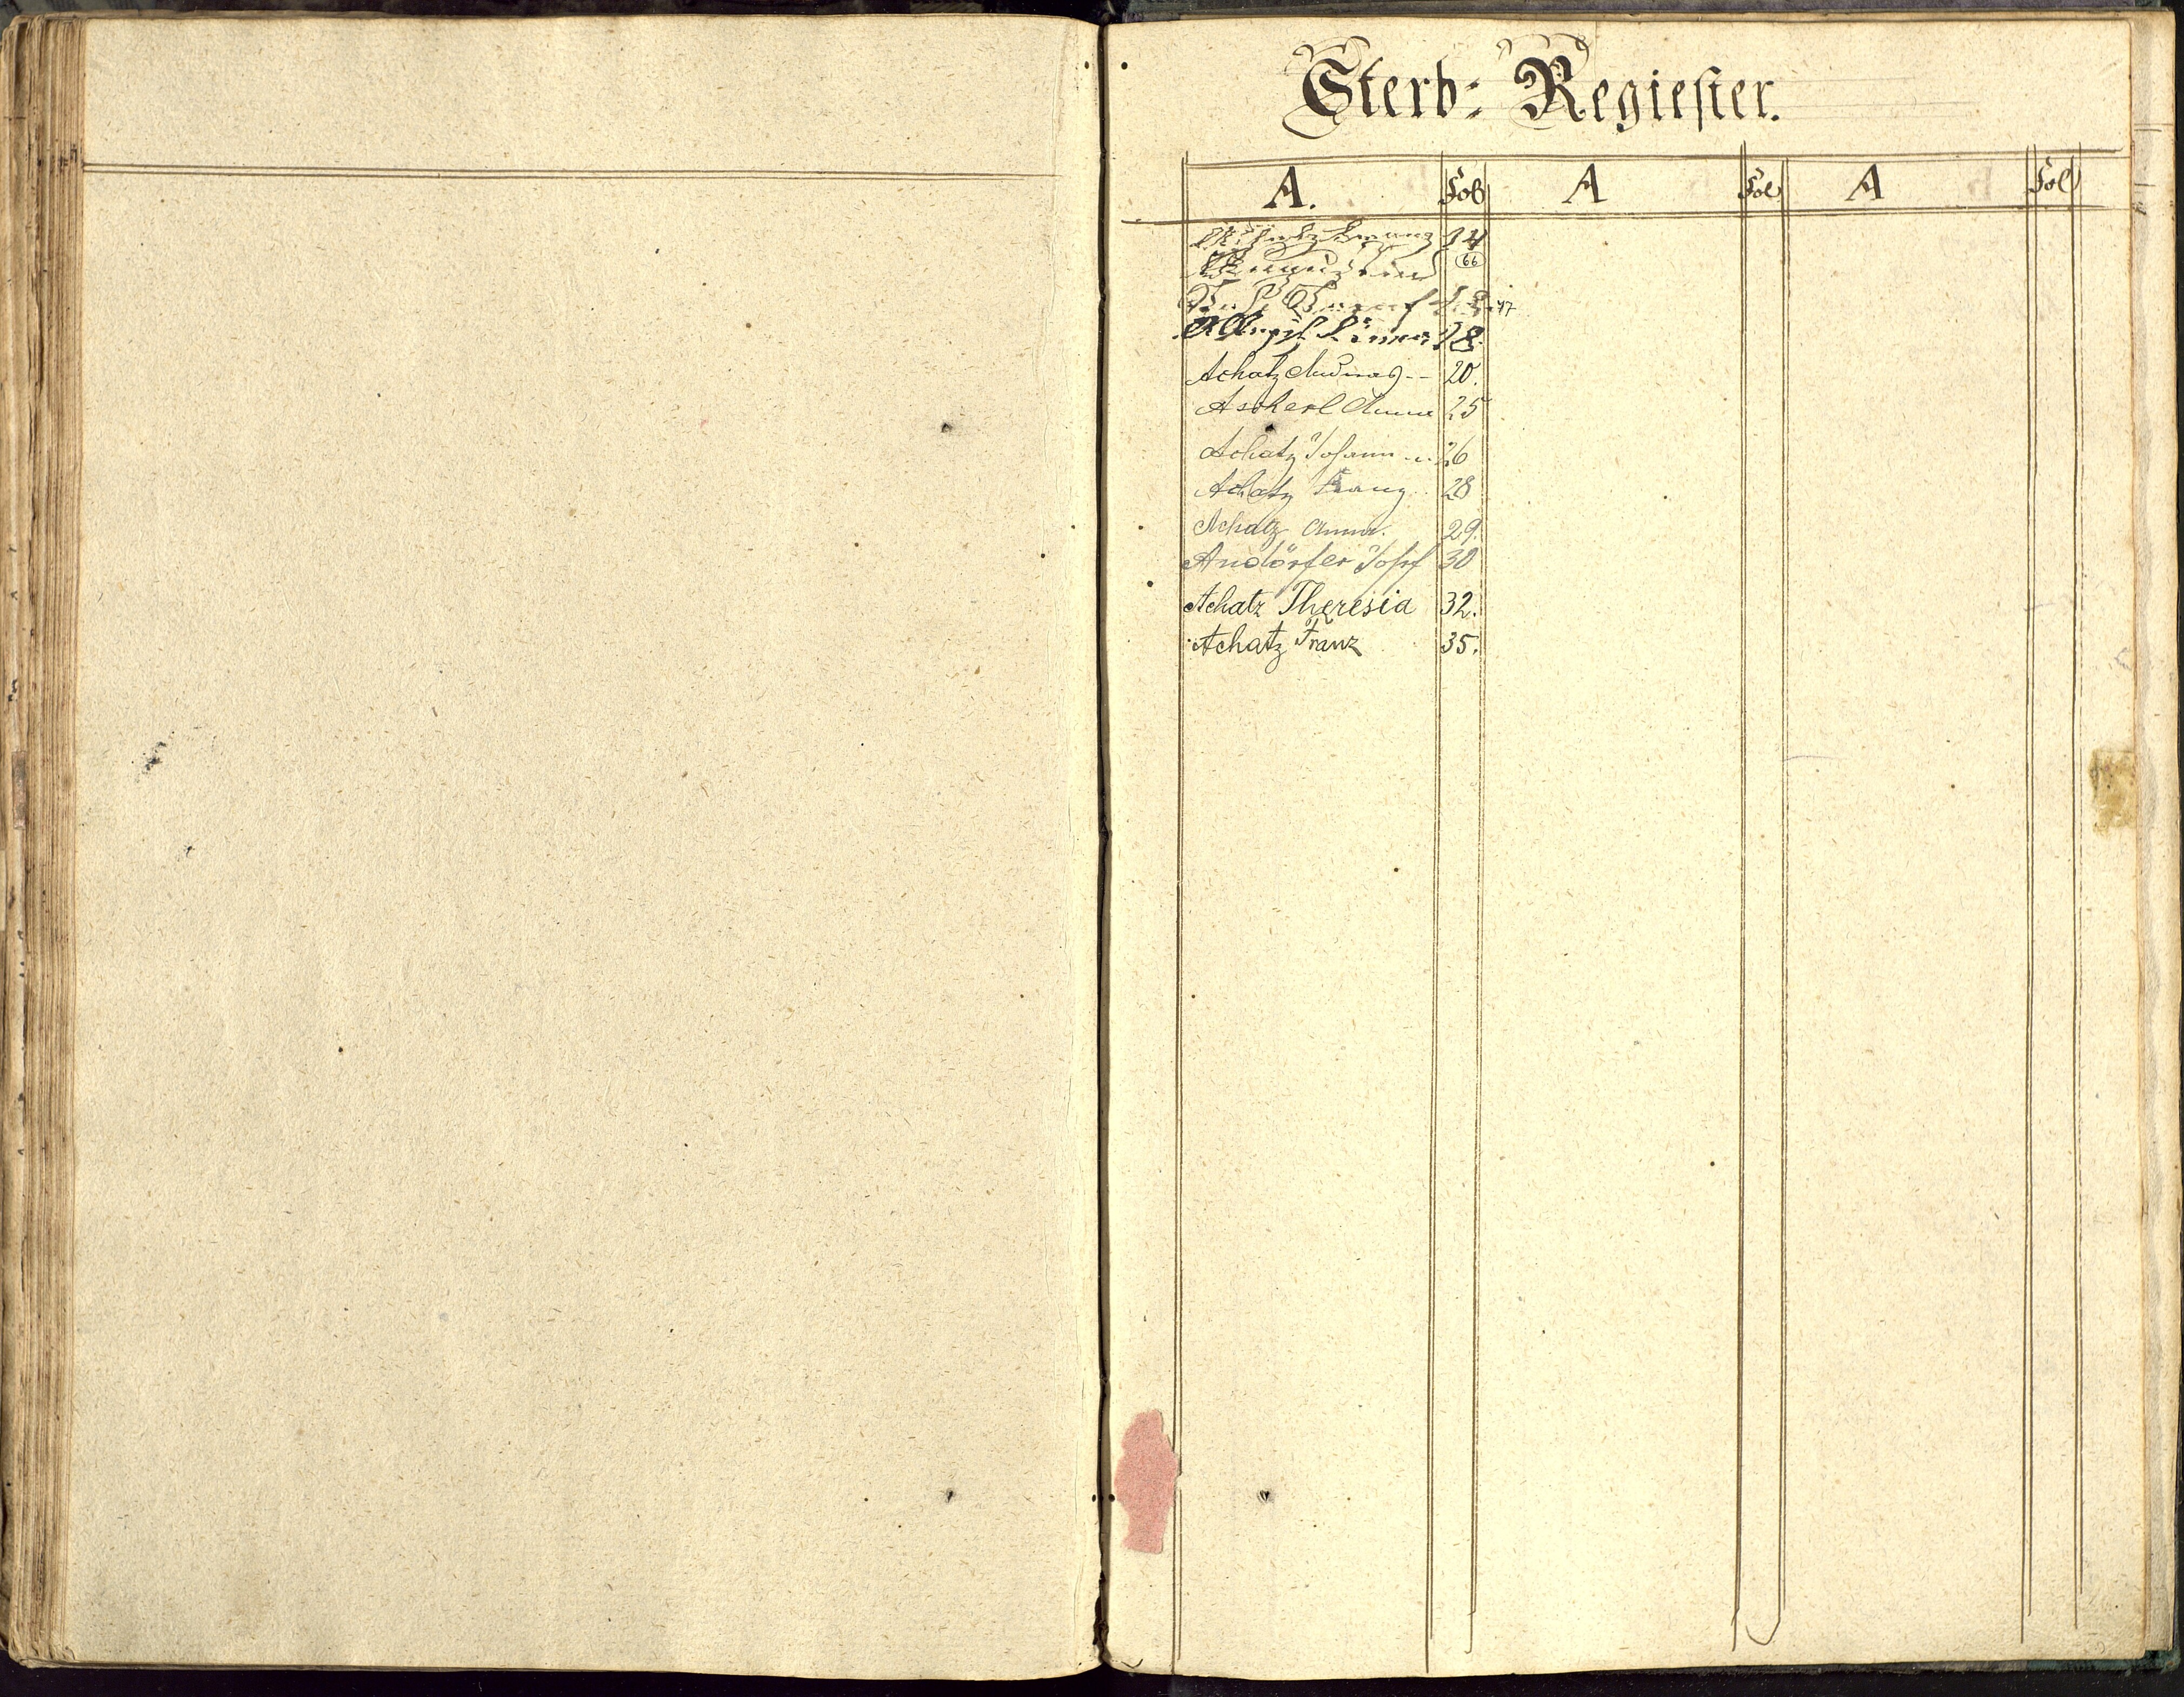 Sterb: Regiester.
A. Fol A Fol A Fol
Achatz Franz 14
66
17
18.
Achatz Andreas -- 20.
Ascherl Anna 25
Achatz Johann .. 26
Achatz Franz. 28
Achatz Anna. 29.
Andörfer Josef 30
Achatz Theresia 32.
Achatz Franz 35.